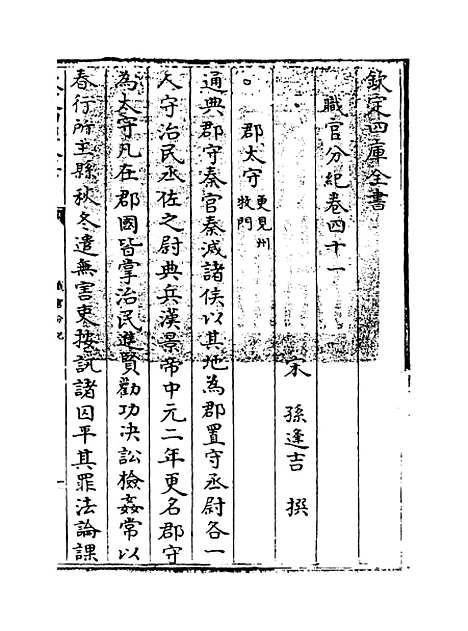 欽定四庫全書
職官分紀卷四十一
宋 孫逢吉 撰
郡太守更見州牧門
通典郡守秦官秦滅諸侯以其地為郡置守丞尉各一
人守治民丞佐之尉典兵漢景帝中元二年更名郡守
為太守凡在郡國皆掌治民進賢勸功決訟檢姦常以
春行所主縣秋冬遣無害吏按訊諸囚平其罪法論課
職官分紀
一